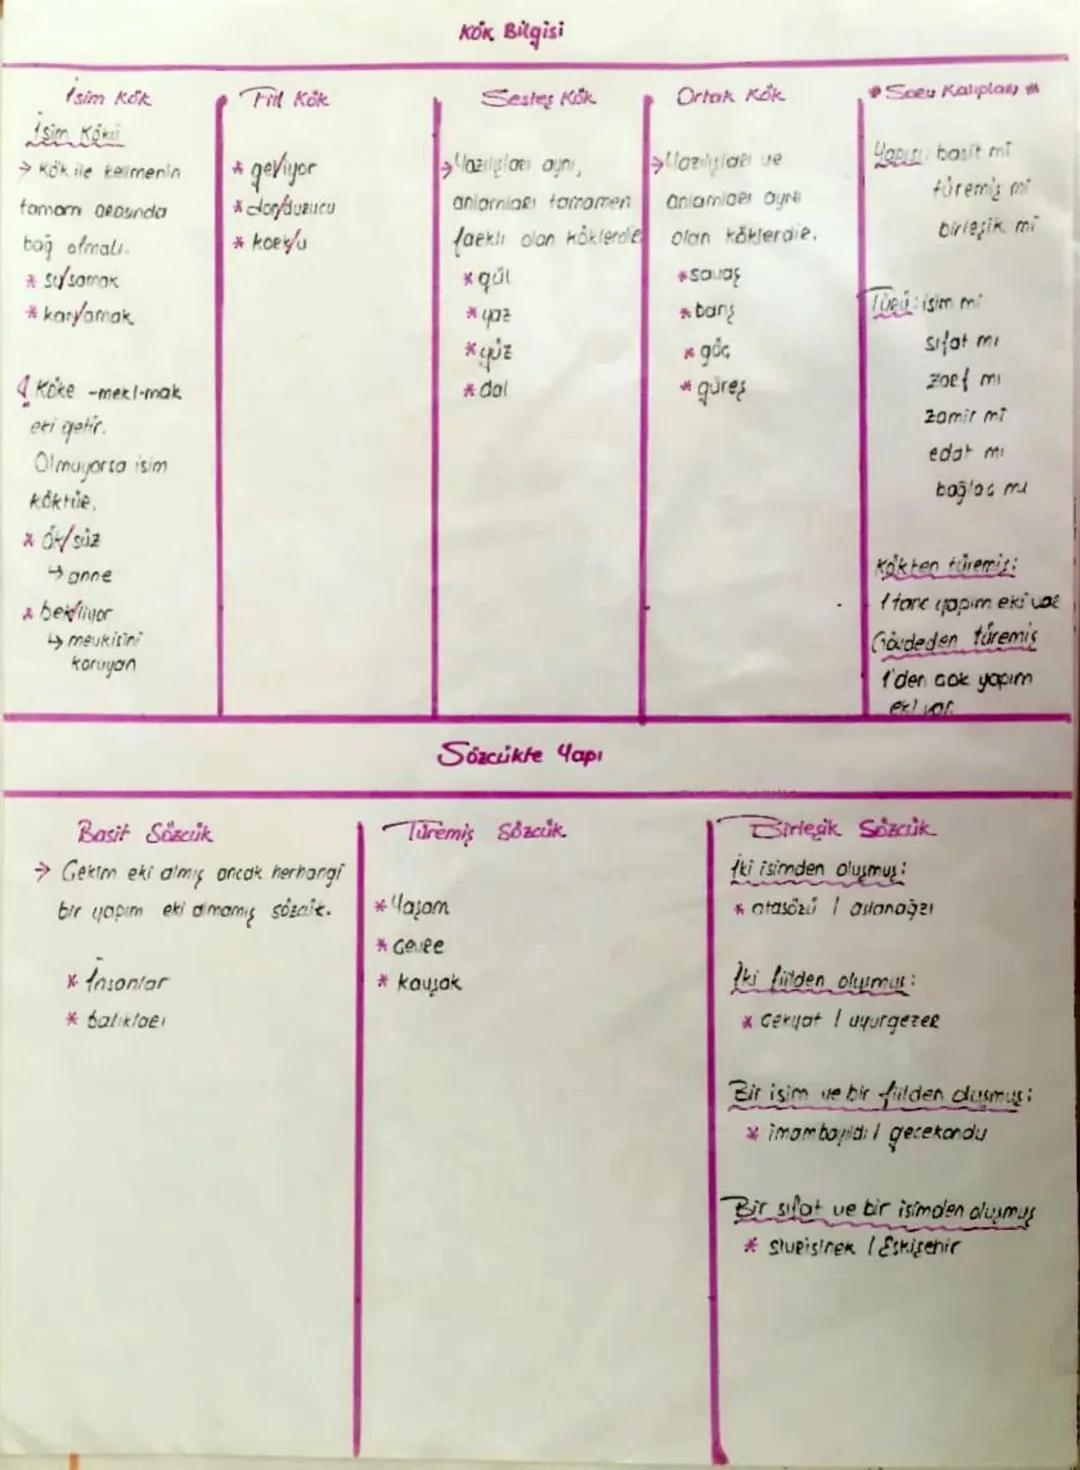 Kök Bilgisi
İsim Kök
İsim Kökü
→ Kök ile kelimenin
tamamı arasında
bağ olmalı.
* su/samak
* kan/amak
! Köke -mek/-mak
eki getir.
Olmuyorsa isim
köktür.
* ök/süz
↳ anne
* bek/liyor
↳ mevkisini
koruyan
Fiil Kök
* gel/iyor
* don/durucu
* kork/u
Sesteş Kök
→ Yazılışları aynı,
anlamları tamamen
farklı olan köklerdir
* gül
* yaz
* yüz
* dal
Ortak Kök
→ Yazılışları ve
anlamları aynı
olan köklerdir.
* savaş
* barış
* göç
* güreş
* Soru Kalıpları *
Yapısı: basit mi
türemiş mi
birleşik mi
Türü: isim mi
sıfat mı
zarf mı
zamir mi
edat mı
bağlaç mı
Kökten türemiş:
1 tane yapım eki var
Gövdeden türemiş
1'den çok yapım
eki var.
Sözcükte Yapı
Basit Sözcük
→ Çekim eki almış ancak herhangi
bir yapım eki almamış sözcük.
* İnsanlar
* balıkları
Türemiş Sözcük
* Yaşam
* Çevre
* kavşak
Birleşik Sözcük
İki isimden oluşmuş:
* atasözü / aslanağzı
İki fiilden oluşmuş:
* Çekyat / uyurgezer
Bir isim ve bir fiilden oluşmuş:
* imambayıldı / gecekondu
Bir sıfat ve bir isimden oluşmuş
* sivrisinek / Eskişehir